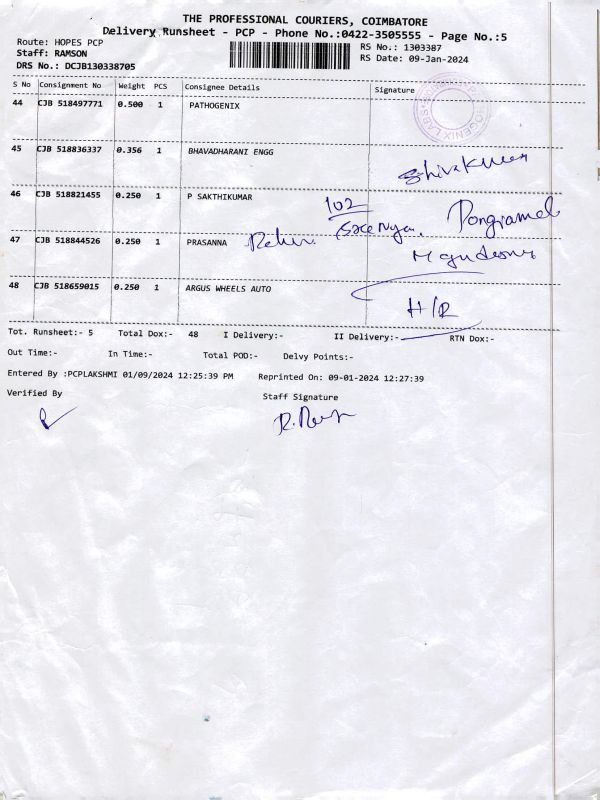 THE PROFESSIONAL COURIERS, COIMBATORE
Delivery Runsheet - PCP - Phone No.:0422-3505555 - Page No.:5
Route: HOPES PCP
RS No.: 1303387
Staff: RAMSON
RS Date: 09-Jan-2024
DRS No.: DCJB130338705
S No Consignment No Weight PCS Consignee Details Signature
44 CJB 518497771 0.500 1 PATHOGENIX
45 CJB 518836337 0.356 1 BHAVADHARANI ENGG
46 CJB 518821455 0.250 1 P SAKTHIKUMAR 102
47 CJB 518844526 0.250 1 PRASANNA
48 CJB 518659015 0.250 1 ARGUS WHEELS AUTO
H/R
Tot. Runsheet:- 5 Total Dox:- 48 I Delivery:- II Delivery:- RTN Dox:-
Out Time:- In Time:- Total POD:- Delvy Points:-
Entered By :PCPLAKSHMI 01/09/2024 12:25:39 PM Reprinted On: 09-01-2024 12:27:39
Verified By Staff Signature